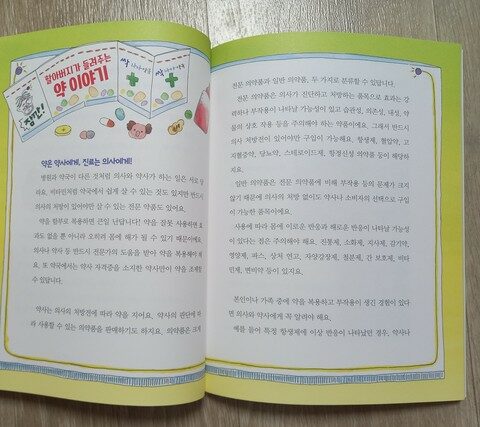 잠깐!
할아버지가 들려주는
약 이야기
약은 약사에게, 진료는 의사에게!
병원과 약국이 다른 것처럼 의사와 약사가 하는 일은 서로 달
라요. 비타민처럼 약국에서 쉽게 살 수 있는 것도 있지만 반드시
의사의 처방이 있어야만 살 수 있는 전문 약품도 있어요.
약을 함부로 복용하면 큰일 난답니다! 약을 잘못 사용하면 효
과도 없을 뿐 아니라 오히려 몸에 해가 될 수 있기 때문이에요.
의사나 약사 등 반드시 전문가의 도움을 받아 약을 복용해야 해
요. 또 약국에서는 약사 자격증을 소지한 약사만이 약을 조제할
수 있답니다.
약사는 의사의 처방전에 따라 약을 지어요. 약사의 판단에 따
라 사용할 수 있는 의약품을 판매하기도 하지요. 의약품은 크게
전문 의약품과 일반 의약품, 두 가지로 분류할 수 있답니다.
전문 의약품은 의사가 진단하고 처방하는 품목으로 효과는 강
력하나 부작용이 나타날 가능성이 있고 습관성, 의존성, 내성, 약
물의 상호 작용 등을 주의해야 하는 약품이에요. 그래서 반드시
의사 처방전이 있어야만 구입이 가능해요. 항생제, 혈압약, 고
지혈증약, 당뇨약, 스테로이드제, 항정신성 의약품 등이 해당하
지요.
일반 의약품은 전문 의약품에 비해 부작용 등의 문제가 크지
않기 때문에 의사의 처방 없이도 약사나 소비자의 선택으로 구입
이 가능한 품목이에요.
사용에 따라 몸에 이로운 반응과 해로운 반응이 나타날 가능성
이 있다는 점은 주의해야 해요. 진통제, 소화제, 지사제, 감기약,
영양제, 파스, 상처 연고, 자양강장제, 철분제, 간 보호제, 비타
민제, 변비약 등이 있지요.
본인이나 가족 중에 약을 복용하고 부작용이 생긴 경험이 있다
면 의사와 약사에게 꼭 알려야 해요.
예를 들어 특정 항생제에 이상 반응이 나타났던 경우, 약사나